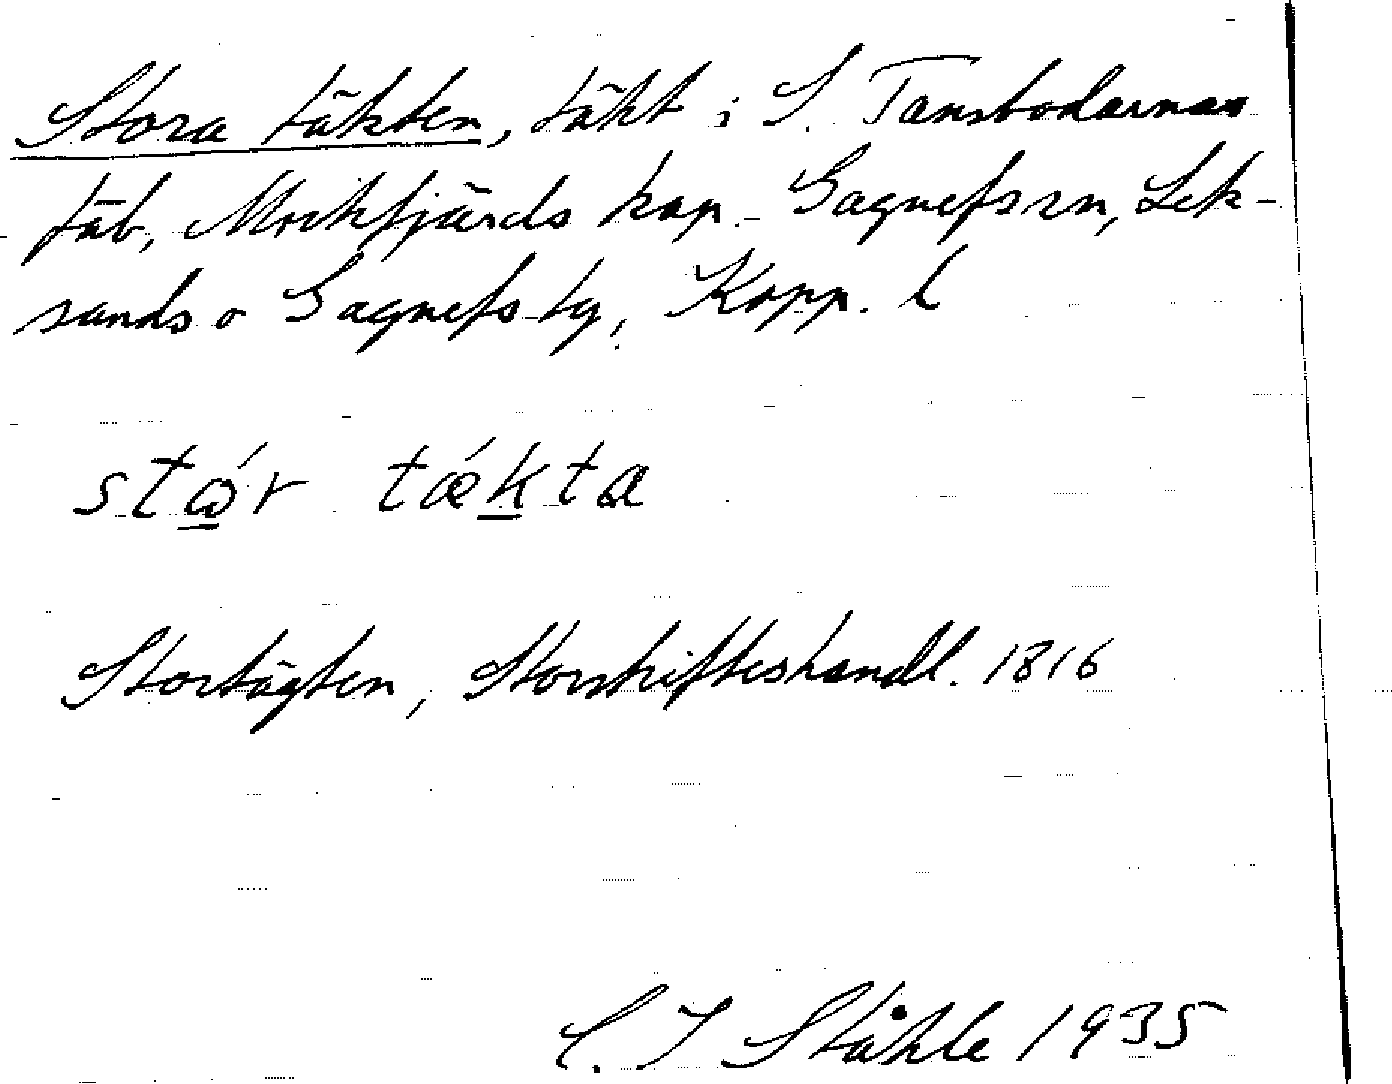 Stora täkten, täkt i S. Tansbodarnas
fäb, Mockfjärds kap. Gagnefs sn, Lek-
sands o Gagnefs tg, Kopp. l
stώ̲r tǽk̲ta
Stortägten, Storskifteshandl. 1816
C. I Ståhle 1935